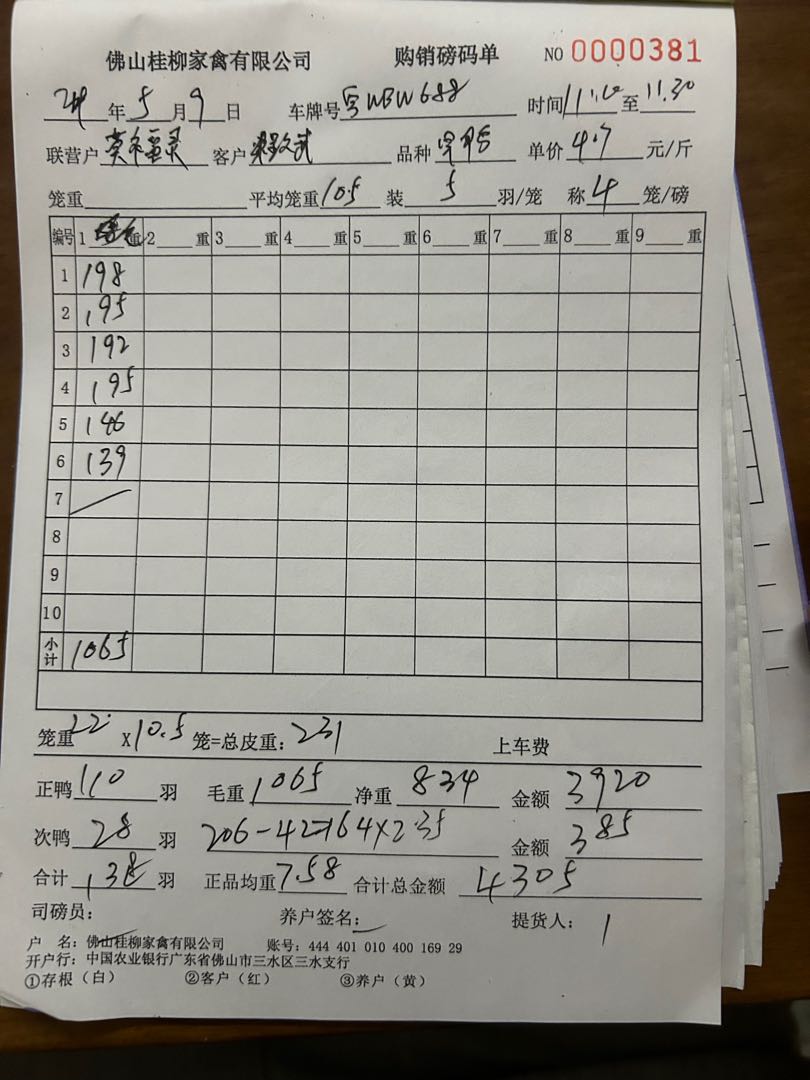 佛山桂柳家禽有限公司 购销磅码单 NO 0000381
年 5 月 9 日 车牌号 WBW688 时间 11:10 至 11.30
联营户 客户 品种 单价 4.7 元/斤
笼重 平均笼重 10.5 装 5 羽/笼 称 4 笼/磅
编号 1 重 2 重 3 重 4 重 5 重 6 重 7 重 8 重 9 重
1 198
2 195
3 192
4 195
5 146
6 139
7
8
9
10
小计 1065
笼重 22 X 10.5 笼=总皮重: 231 上车费
正鸭 110 羽 毛重 1065 净重 834 金额 3920
次鸭 28 羽 206-42=164×2.35 金额 385
合计 138 羽 正品均重 7.58 合计总金额 4305
司磅员: 养户签名: 提货人:
户 名: 佛山桂柳家禽有限公司 账号: 444 401 010 400 169 29
开户行: 中国农业银行广东省佛山市三水区三水支行
①存根（白） ②客户（红） ③养户（黄）